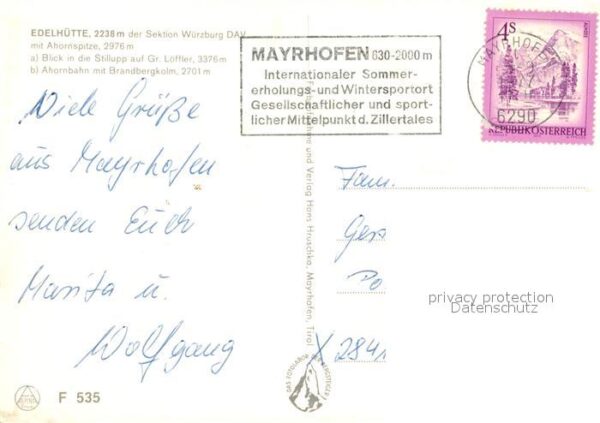 EDELHÜTTE, 2238 m der Sektion Würzburg DAV
mit Ahornspitze, 2976 m
a) Blick in die Stillupp auf Gr. Löffler, 3376 m
b) Ahornbahn mit Brandbergkolm, 2701 m
MAYRHOFEN 630-2000 m
Internationaler Sommer-
erholungs- und Wintersportort
Gesellschaftlicher und sport-
licher Mittelpunkt d. Zillertales
4S
REPUBLIK ÖSTERREICH
MAYRHOFEN
6290
Viele Grüße
aus Mayrhofen
senden Euch
Marita u.
Wolfgang
und Verlag Hans Hruschka, Mayrhofen, Tirol
Fam.
Ger
Po
privacy protection
Datenschutz
X 284
F 535